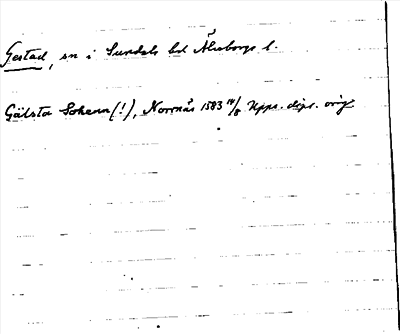 Gestad, sn i Sundals hd Älvsborgs l.
Gälsta Sokenn (!), Norrnäs 1583 14/8 Upps. dipl. orig